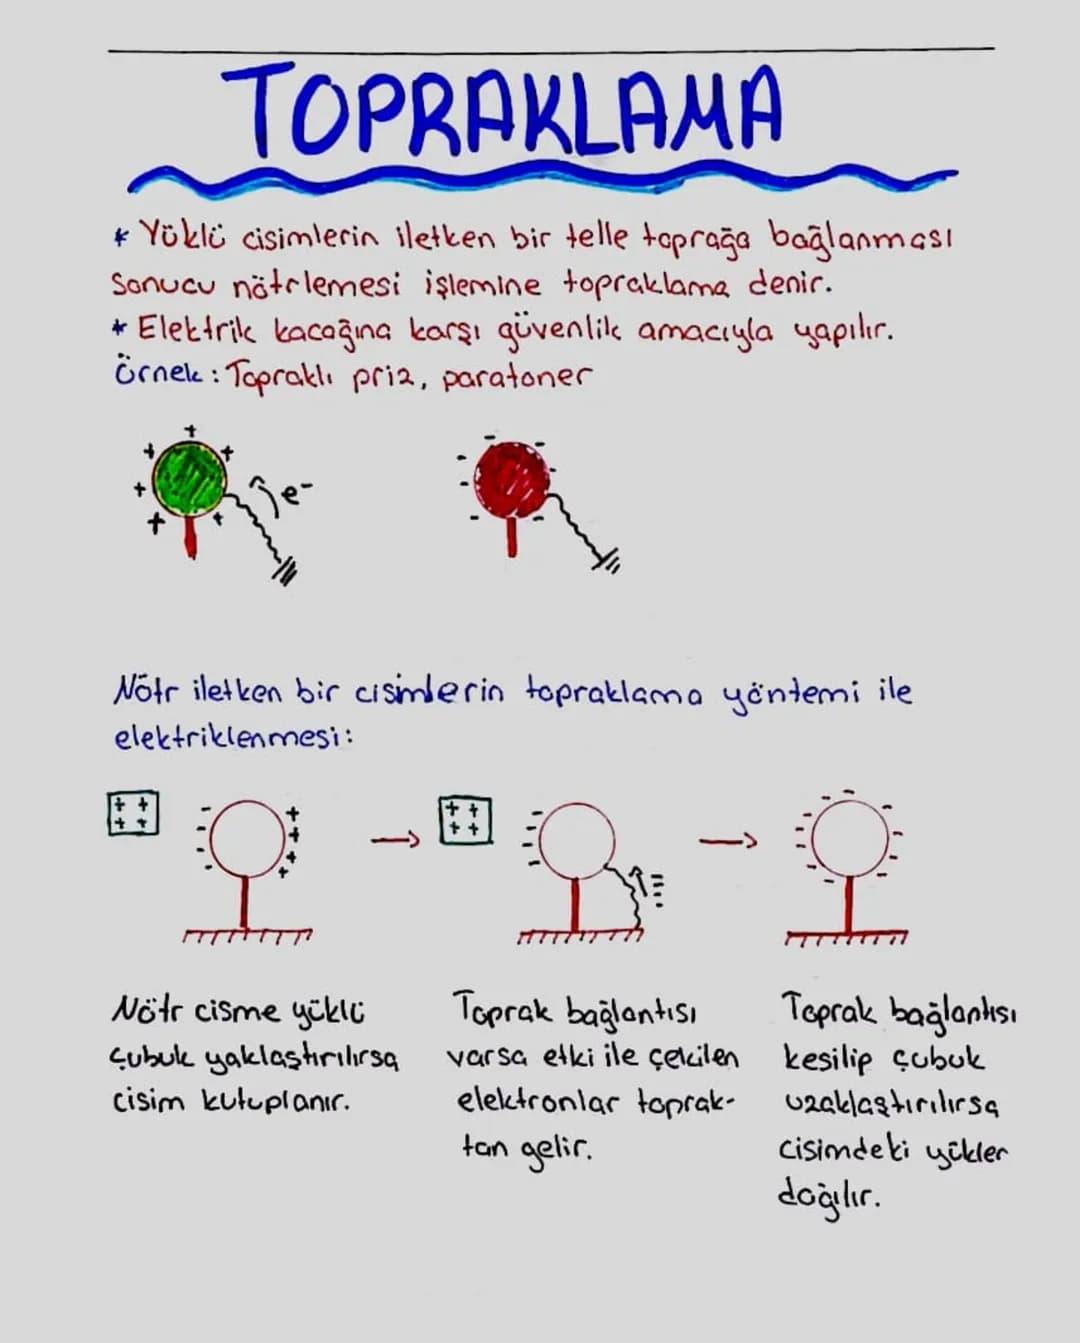 TOPRAKLAMA
* Yüklü cisimlerin iletken bir telle toprağa bağlanması
Sonucu nötrlemesi işlemine topraklama denir.
* Elektrik kacağına karşı güvenlik amacıyla yapılır.
Örnek : Topraklı priz, paratoner
e-
Nötr iletken bir cisimlerin topraklama yöntemi ile
elektriklenmesi:
Nötr cisme yüklü
çubuk yaklaştırılırsa
cisim kutuplanır.
Toprak bağlantısı
varsa etki ile çekilen
elektronlar toprak-
tan gelir.
Toprak bağlantısı
kesilip çubuk
uzaklaştırılırsa
cisimdeki yükler
dağılır.